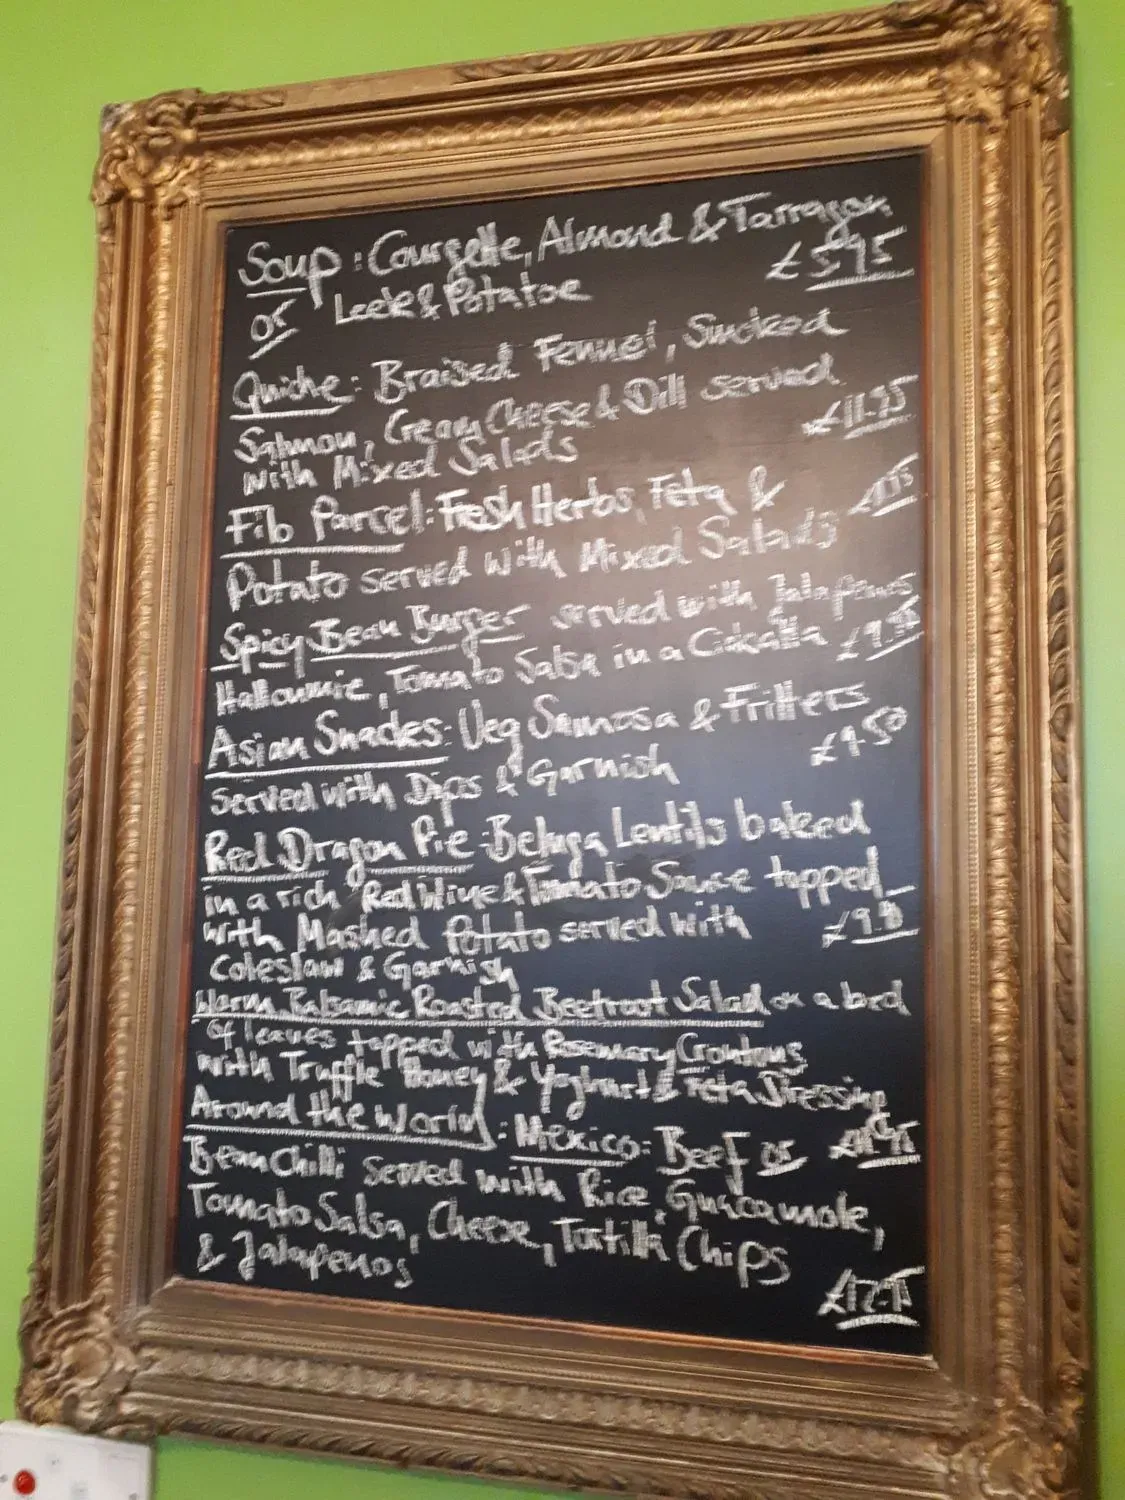 Soup: Courgette, Almond & Tarragon
or Leek & Potatoe £5.95
Quiche: Braised Fennel, Smoked
Salmon, Cream Cheese & Dill served
with Mixed Salads £11.95
Filo Parcel: Fresh Herbs, Feta &
Potato served with Mixed Salads
Spicy Bean Burger served with Jalapenos
Halloumie, Tomato Salsa in a £9.95
Asian Snacks: Veg Samosa & Fritters
served with Dips & Garnish £9.50
Red Dragon Pie: Beluga Lentils baked
in a rich Red Wine & Tomato Sauce topped
with Mashed Potato served with
Coleslaw & Garnish
Warm Balsamic Roasted Beetroot Salad on a bed
of leaves topped with Rosemary Croutons
with Truffle Honey & Yoghurt & Feta Dressing
Around the World: Mexico: Beef or
Bean Chilli served with Rice, Guacamole,
Tomato Salsa, Cheese, Tortilla Chips
& Jalapenos
£12.95